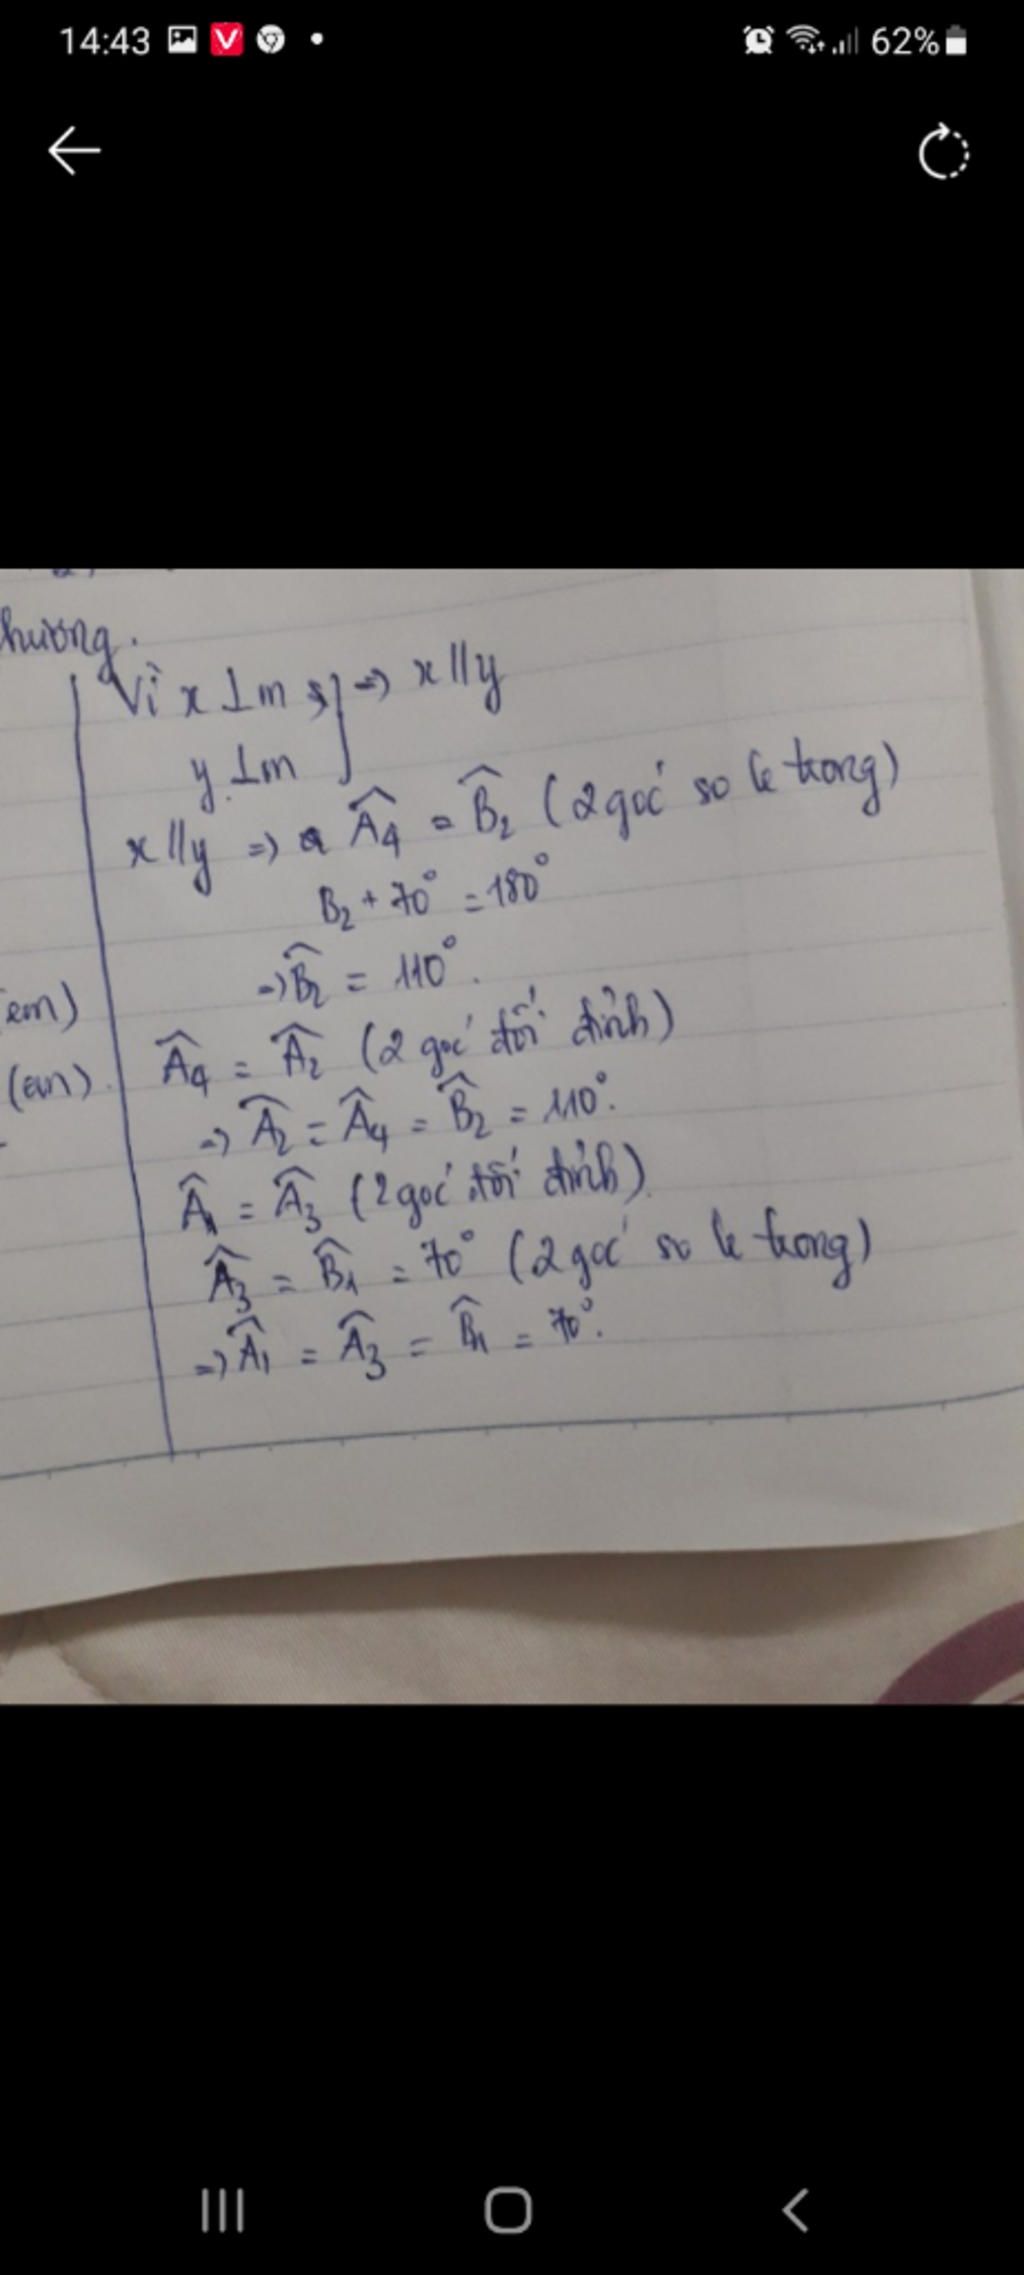 14:43
62%
Vì x ⊥ m } => x // y
y ⊥ m
x // y => Â₄ = B̂₂ (2 góc so le trong)
B₂ + 70° = 180°
=> B̂₂ = 110°.
em)
Â₄ = Â₂ (2 góc đối đỉnh)
(em)
=> Â₂ = Â₄ = B̂₂ = 110°.
Â₁ = Â₃ (2 góc đối đỉnh)
Â₃ = B̂₁ = 70° (2 góc so le trong)
=> Â₁ = Â₃ = B̂₁ = 70°.